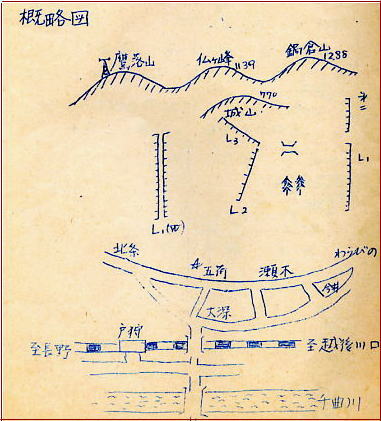 概略図
鷹落山
仏ヶ峰
1139
鍋倉山
1288
770
城山
L3
L1
L2
L1(田)
北条
五荷
瀬木
わらびの
大深
今井
戸狩
至長野
至越後川口
千曲川